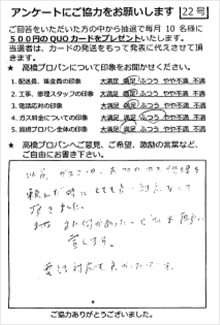 アンケートにご協力をお願いします 22号
ご回答をいただいた方の中から抽選で毎月10名様に
500円のQUOカードをプレゼントいたします。
当選者は、カードの発送をもって発表に代えさせて頂
きます。
★ 高橋プロパンについて印象をお聞かせください。
1. 配送員、集金員の印象 大満足 満足 ふつう やや不満 不満
2. 工事、修理スタッフの印象 大満足 満足 ふつう やや不満 不満
3. 電話応対の印象 大満足 満足 ふつう やや不満 不満
4. ガス料金についての印象 大満足 満足 ふつう やや不満 不満
5. 高橋プロパン全体の印象 大満足 満足 ふつう やや不満 不満
★ 高橋プロパンへご意見、ご希望、激励の言葉など、
ご自由にお書き下さい。
以前 ガスコンロ、お
頼んだ時に とても良い対応をして
頂きました。
また何かあったらどうぞお願い
致します。
電話対応も良かったです。
ご協力ありがとうございました。